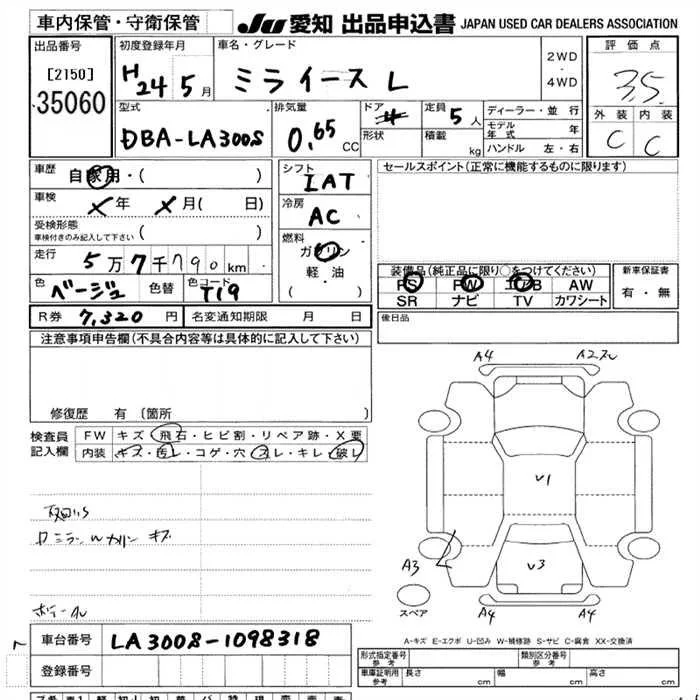 車内保管・守衛保管
JU 愛知 出品申込書 JAPAN USED CAR DEALERS ASSOCIATION
出品番号
[2150]
35060
初度登録年月
H24 5月
車名・グレード
ミライース L
2WD
・
4WD
評価点
3.5
外装 内装
C C
型式
DBA-LA300S
排気量
0.65 CC
ドア
4
形状
定員 5人
積載 kg
ディーラー・並行
モデル年式 年
ハンドル 左・右
車歴
自家用・( )
車検
X年 X月( 日)
受検形態
車検付きのみ記入して下さい ( )
走行
5万7千790km
色
ベージュ
色替
色コード
T19
シフト
IAT
冷房
AC
燃料
ガソリン
軽・油
( ・ )
セールスポイント(正常に機能するものに限ります)
装備品(純正品に限り○をつけてください)
PS PW エアB AW
SR ナビ TV カワシート
新車保証書
有・無
R券 7,320円
名変通知期限 月 日
後日品
注意事項申告欄(不具合内容等は具体的に記入して下さい)
修復歴 有〔箇所 〕
検査員
記入欄
FW キズ・飛石・ヒビ割・リペア跡・X要
内装 キズ・汚レ・コゲ・穴・スレ・キレ・破レ
A4
V1
A3
V3
A4
A4
スペア
A-キズ E-エクボ U-凹み W-補修跡 S-サビ C-腐食 XX-交換済
車台番号 LA300S-1098318
登録番号
形式指定番号
参考
類別区分番号
参考
車庫証明用
参考
長さ cm 幅 cm 高さ cm